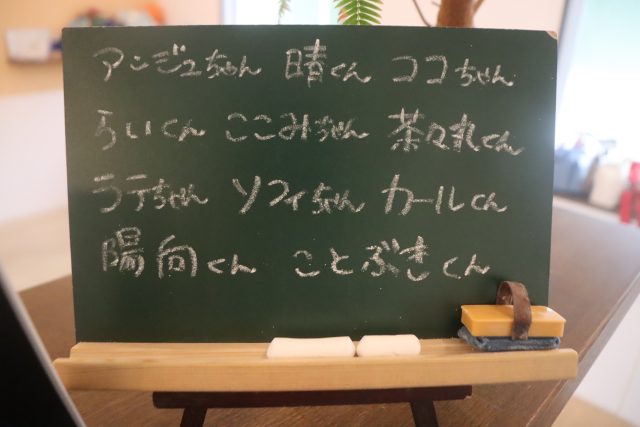 アンジュちゃん 晴くん ココちゃん
らいくん ここみちゃん 茶々丸くん
ラテちゃん ソフィちゃん カールくん
陽向くん ことぶきくん